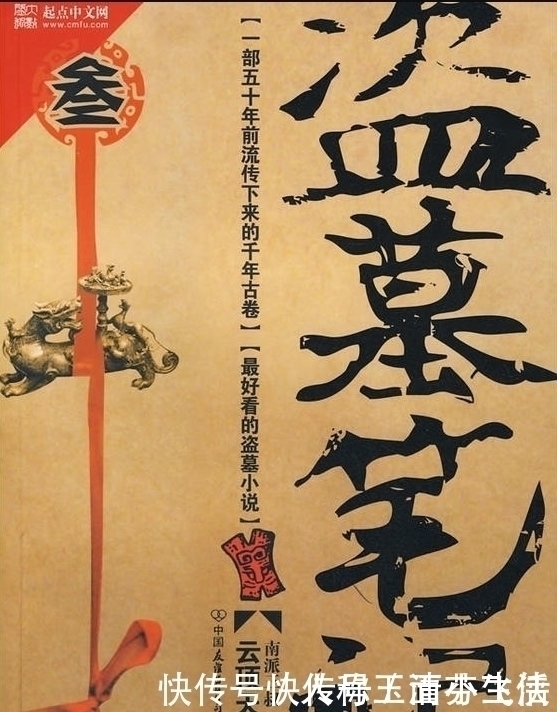 起点中文网
www.cmfu.com
叁
盗墓笔记
【一部五十年前流传下来的千年古卷】【最好看的盗墓小说】
南派
云顶
中国友谊
快传号